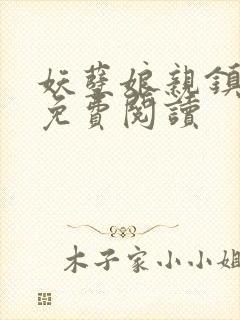 妖孽娘親鎮
免費閱讀
木子家小小姐